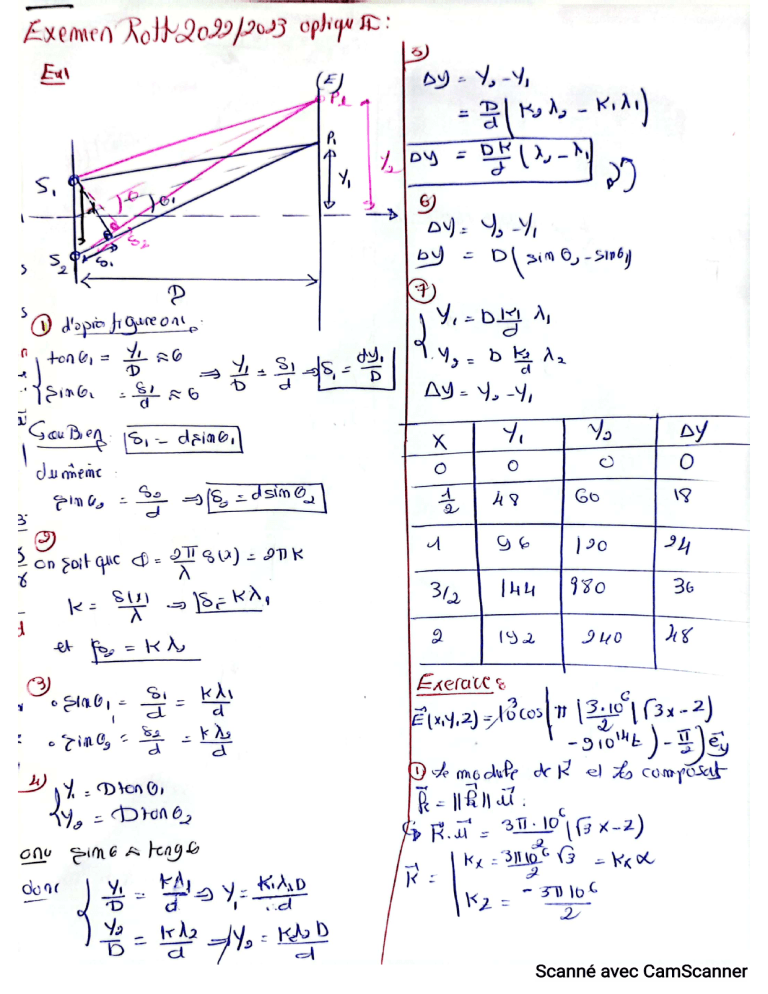 Exemen Ratt 2022/2023 optique :
Ex1
(E)
P2
P1
Y1
Y2
S1
θ1
S2
δ1
δ2
D
① d'après figure on a
tan θ1 = Y1/D ≈ θ
sin θ1 = δ1/d ≈ θ
⇒ Y1/D = δ1/d ⇒ δ1 = dY1/D
Ou Bien δ1 = d sin θ1
du même
sin θ2 = δ2/d ⇒ δ2 = d sin θ2
②
on sait que Φ = 2π/λ δ(x) = 2πK
K = δ(x)/λ ⇒ δ1 = Kλ1
et δ2 = Kλ2
③
• sin θ1 = δ1/d = Kλ1/d
• sin θ2 = δ2/d = Kλ2/d
4)
Y1 = D tan θ1
Y2 = D tan θ2
on a sin θ ≈ tang θ
donc
Y1/D = Kλ1/d ⇒ Y1 = K1λ1D/d
Y2/D = Kλ2/d ⇒ Y2 = Kλ2D/d
5)
ΔY = Y2 - Y1
= D/d (K2λ2 - K1λ1)
ΔY = DK/d (λ2 - λ1)
6)
ΔY = Y2 - Y1
ΔY = D(sin θ2 - sin θ1)
⑦
Y1 = D K1/d λ1
Y2 = D K2/d λ2
ΔY = Y2 - Y1
X Y1 Y2 ΔY
0 0 0 0
1/2 48 60 18
1 96 120 24
3/2 144 980 36
2 192 240 48
Exercice
E(x,y,z) = 10³ cos[π(3.10⁶/2 (√3x - z)
- 9 10¹⁴t) - π/2] ey
① le module de K et les composat
K = ||K|| u
K.u = 3π.10⁶/2 (√3x - z)
K =
Kx = 3π10⁶/2 √3 = Kx α
Kz = -3π10⁶/2
Scanné avec CamScanner